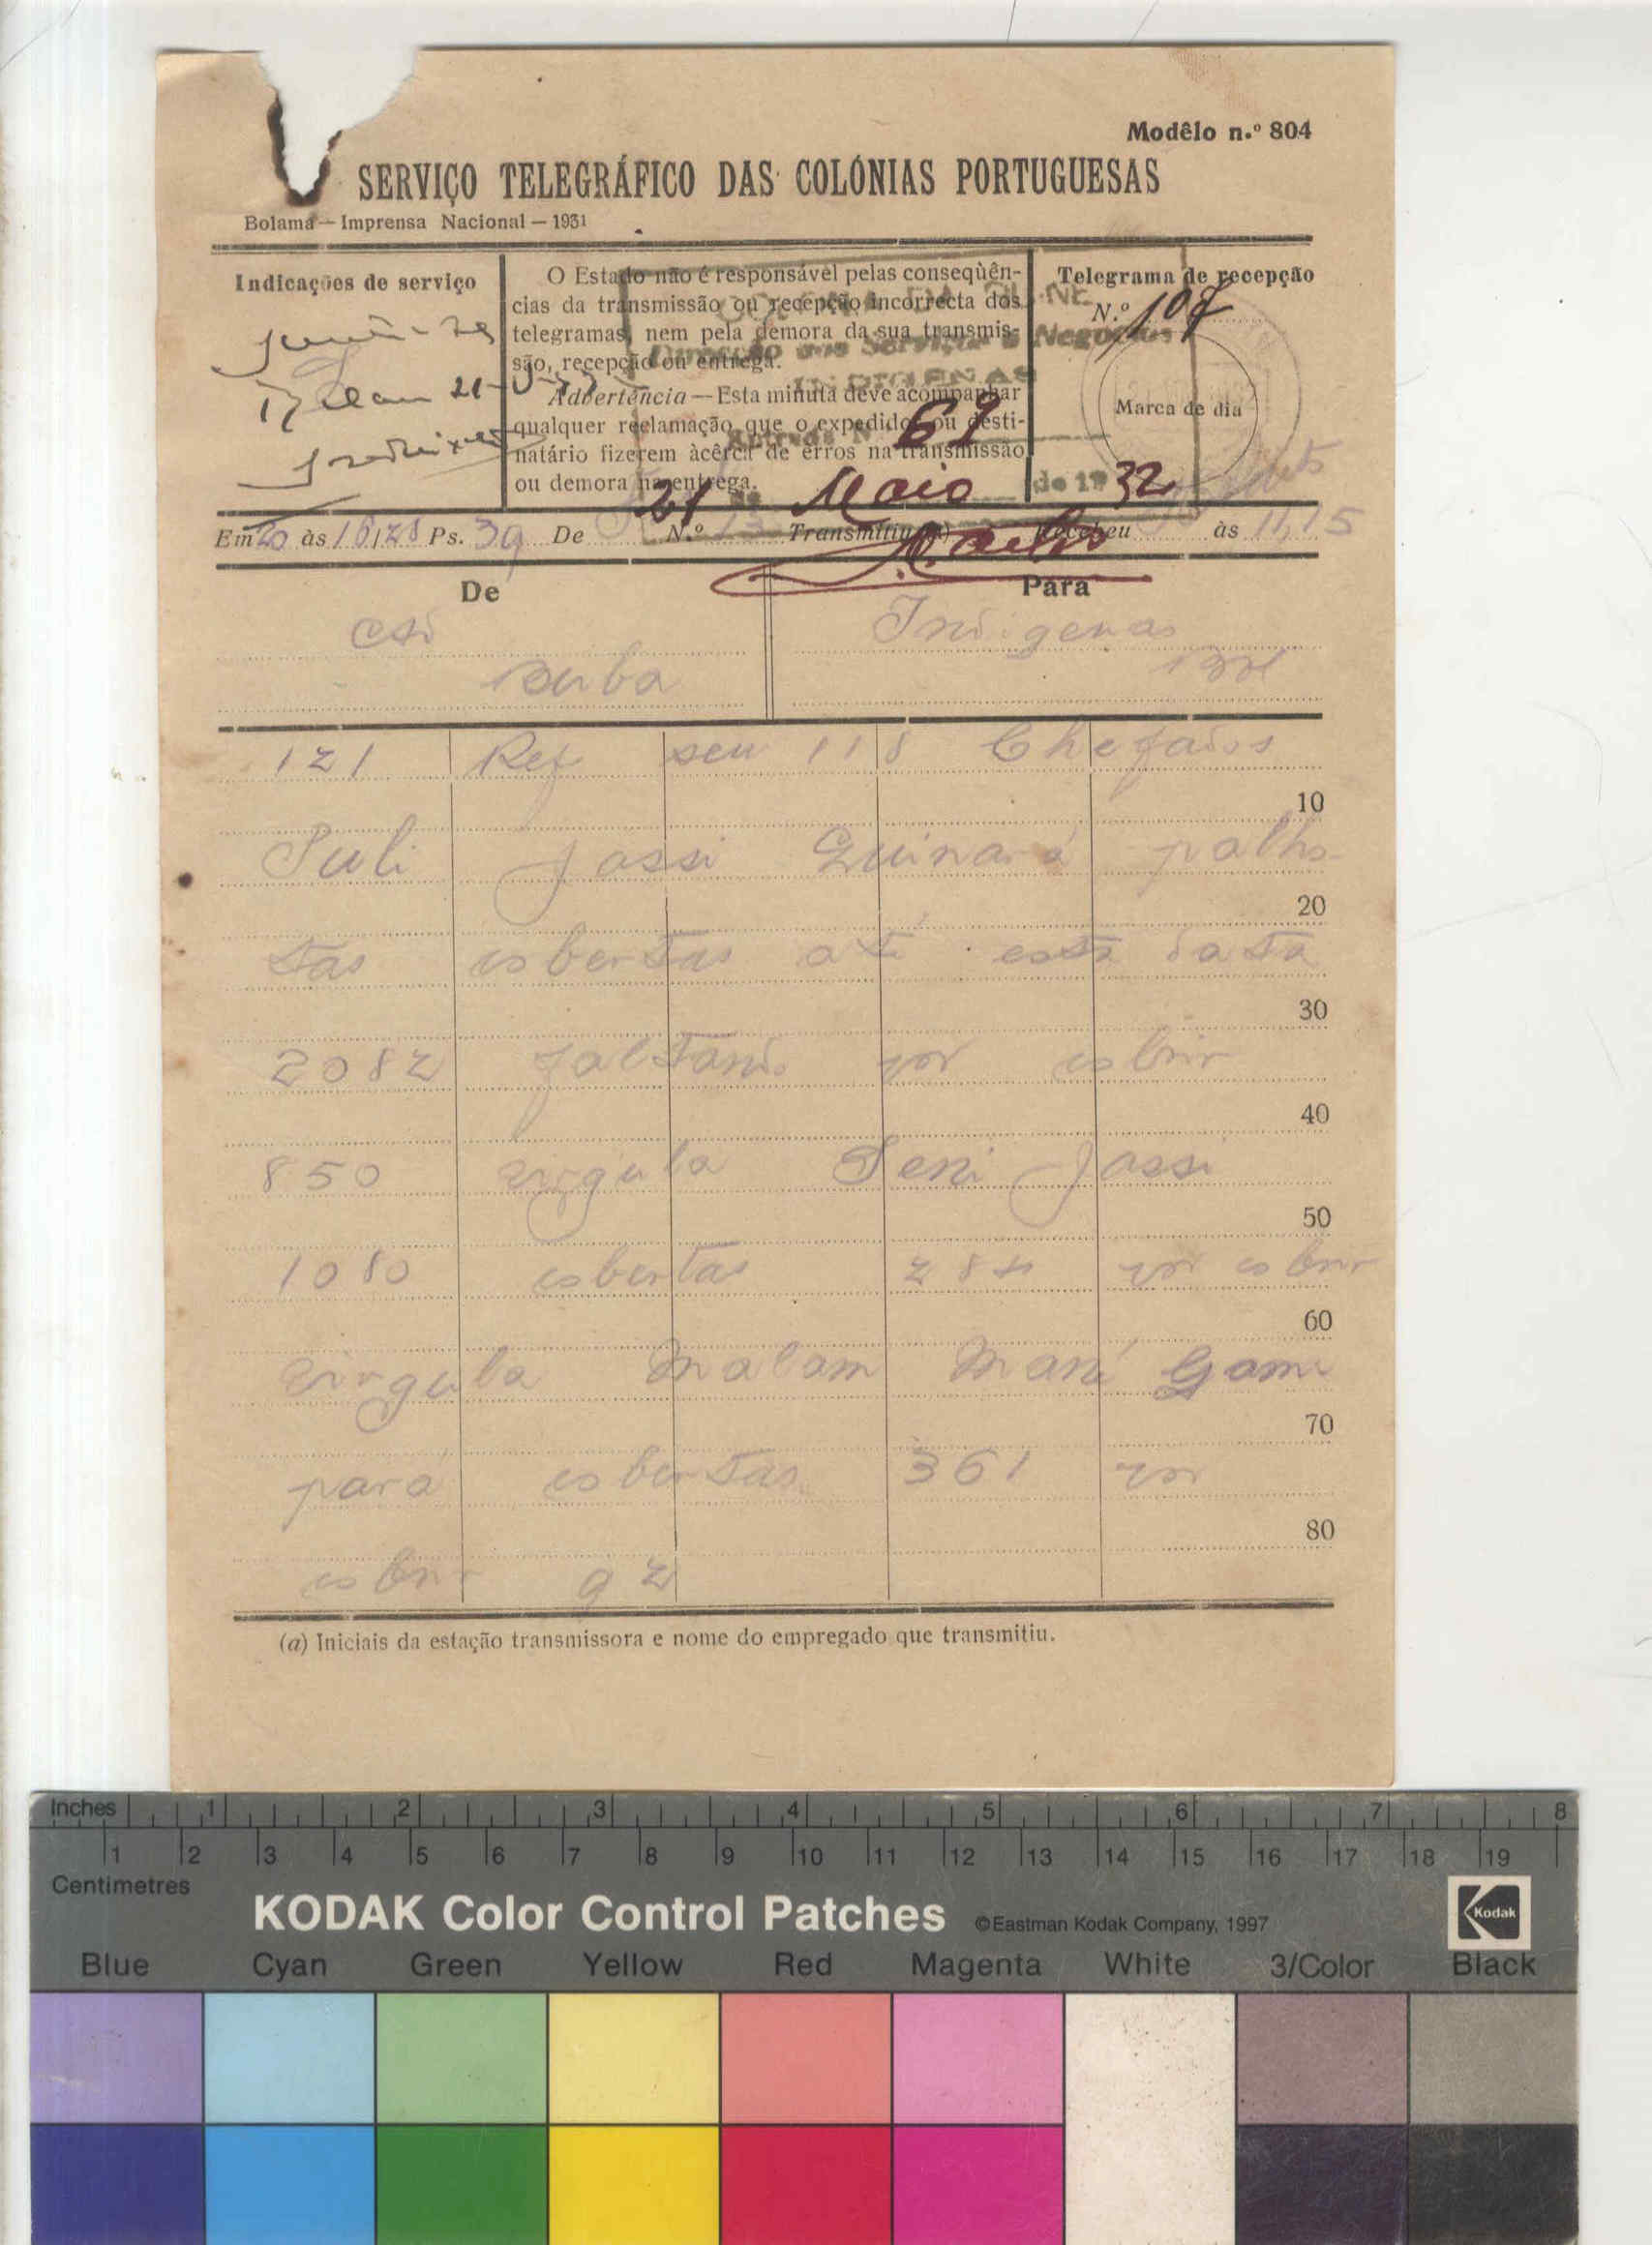 Modêlo n.º 804
SERVIÇO TELEGRÁFICO DAS COLÓNIAS PORTUGUESAS
Bolama — Imprensa Nacional — 1931
Indicações de serviço
O Estado não é responsável pelas conseqüên-
cias da transmissão ou recepção incorrecta dos
telegramas, nem pela demora da sua transmis-
são, recepção ou entrega.
Advertência — Esta minuta deve acompanhar
qualquer reclamação que o expedidor ou desti-
natário fizerem àcêrca de erros na transmissão
ou demora na entrega.
Telegrama de recepção
N.º 107
Marca de dia
Direcção dos Serviços e Negocios
INDIGENAS
Entrada N.º 69
21 de Maio de 1932
Em 20 às 16,28 Ps. 39 De N.º 13 Transmitiu (a) Recebeu às 11,15
De
Para
Indigenas
121 Ref seu 118 Chefados
10
Suli Jassi Guinará palho-
20
tas cobertas até esta data
30
2082 faltando por cobrir
40
850 virgula Seni Jassi
50
1080 cobertas 284 por cobrir
60
virgula Malam Mané Gam
70
pará cobertas 361 por
80
cobrir 92
(a) Iniciais da estação transmissora e nome do empregado que transmitiu.
Inches 1 2 3 4 5 6 7 8
1 2 3 4 5 6 7 8 9 10 11 12 13 14 15 16 17 18 19
Centimetres
KODAK Color Control Patches ©Eastman Kodak Company, 1997 Kodak
Blue Cyan Green Yellow Red Magenta White 3/Color Black